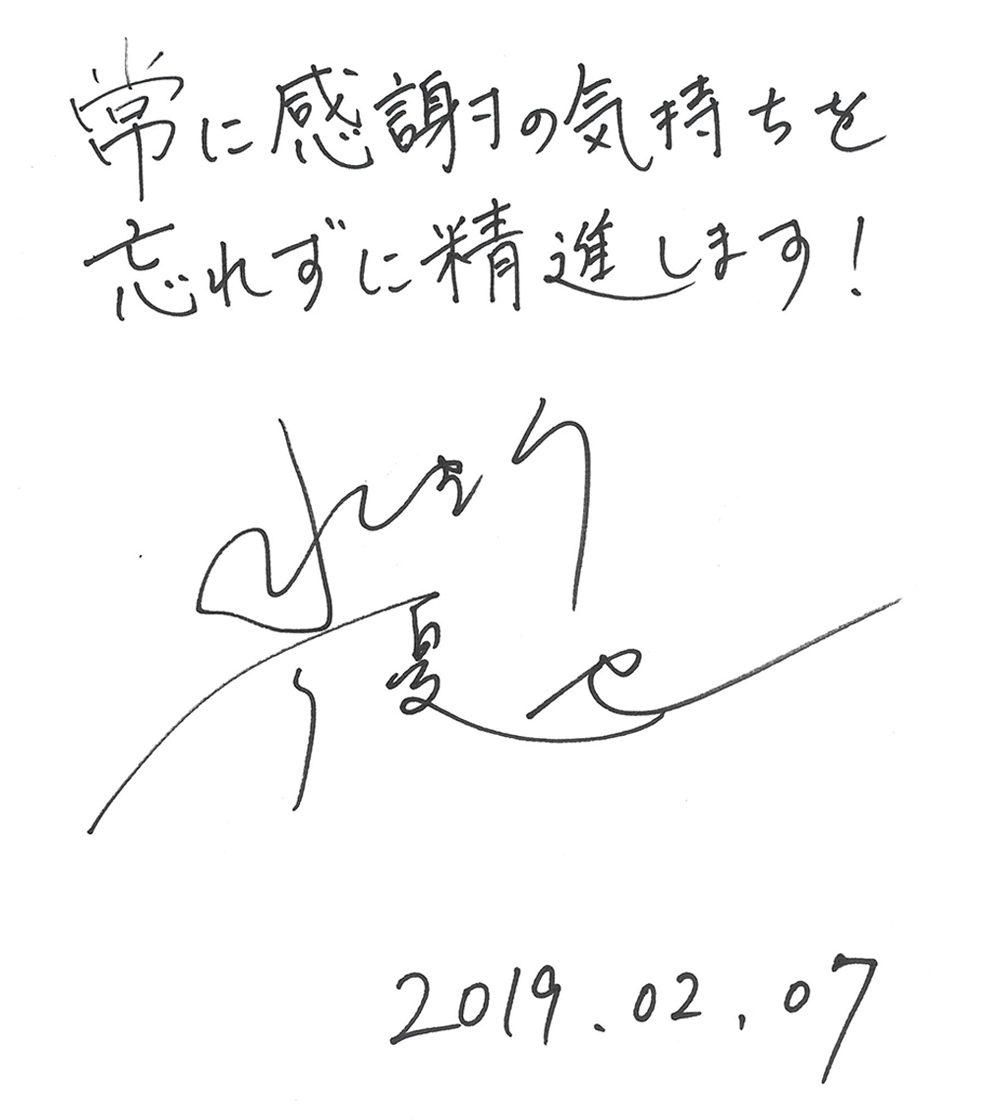 常に感謝の気持ちを
忘れずに精進します!
2019.02.07